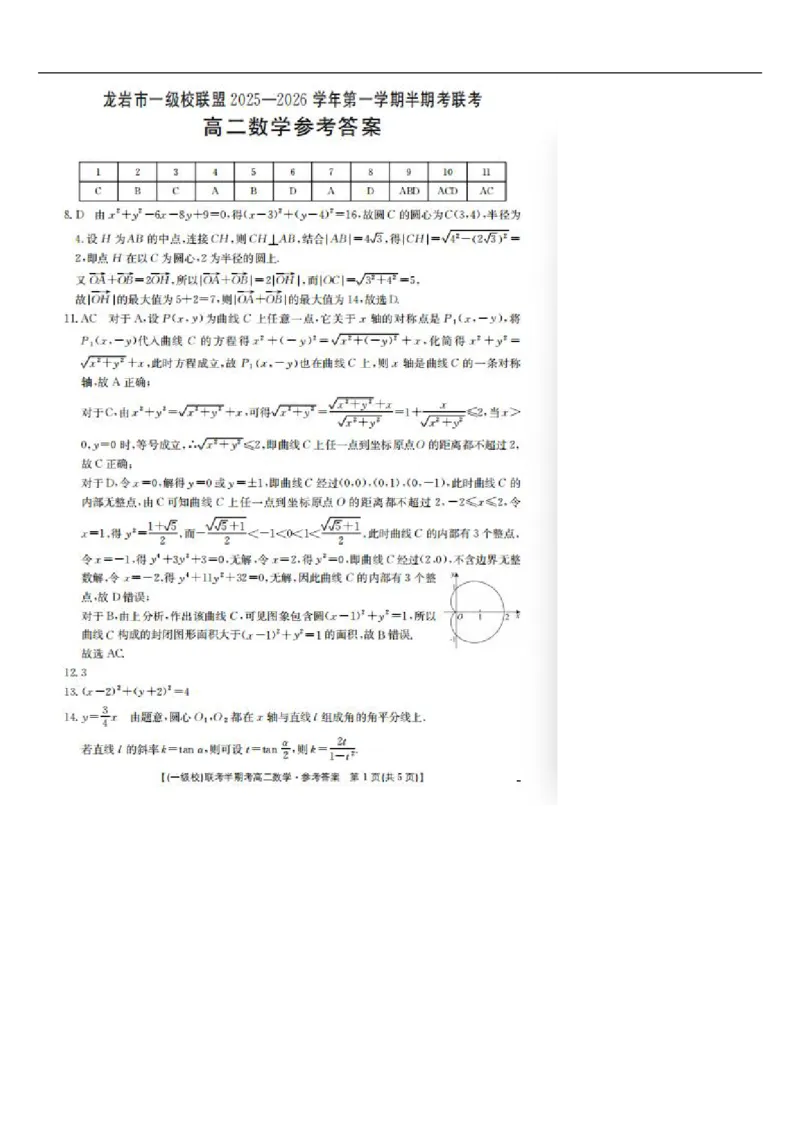 龙岩市一级校联盟 2025—2026 学年第一学期半期考联考
高二数学参考答案
1 2 3 4 5 6 7 8 9 10 11
C B C A B D A D ABD ACD AC
8. D 由 x²+y²−6x−8y+9=0,得(x−3)²+(y−4)²=16,故圆 C 的圆心为C(3,4),半径为
4. 设 H 为AB 的中点,连接 CH,则 CH⊥AB,结合|AB|=4√3,得|CH|=√(4²−(2√3)²)=
2,即点 H 在以 C 为圆心,2 为半径的圆上.
又 OA+OB=2OH,所以|OA+OB|=2|OH|,而|OC|=√(3²+4²)=5,
故|OH|的最大值为 5+2=7,则|OA+OB|的最大值为 14,故选 D.
11. AC 对于 A,设 P(x,y)为曲线 C 上任意一点,它关于 x 轴的对称点是 P₁(x,−y),将
P₁(x,−y)代入曲线 C 的方程得 x²+(−y)²=√(x²+(−y)²)+x,化简得 x²+y²=
√(x²+y²)+x,此时方程成立,故 P₁(x,−y)也在曲线 C 上,则 x 轴是曲线 C 的一条对称
轴,故 A 正确;
对于C,由 x²+y²=√(x²+y²)+x,可得√(x²+y²)=(√(x²+y²)+x)/√(x²+y²)=1+x/√(x²+y²)≤2,当 x>
0,y=0 时,等号成立,∴√(x²+y²)≤2,即曲线 C 上任一点到坐标原点O 的距离都不超过 2,
故 C 正确;
对于 D,令 x=0,解得 y=0 或 y=±1,即曲线 C 经过(0,0),(0,1),(0,−1),此时曲线 C 的
内部无整点,由 C 可知曲线 C 上任一点到坐标原点 O 的距离都不超过 2,−2≤x≤2,令
x=1,得 y²=(1+√5)/2,而−√(√5+1)/2<−1<0<1<√(√5+1)/2,此时曲线 C 的内部有 3 个整点,
令 x=−1,得 y⁴+3y²+3=0,无解,令 x=2,得 y²=0,即曲线 C 经过(2,0),不含边界无整
数解,令 x=−2,得 y⁴+11y²+32=0,无解,因此曲线 C 的内部有 3 个整
点,故 D 错误;
对于 B,由上分析,作出该曲线 C,可见图象包含圆(x−1)²+y²=1,所以
曲线 C 构成的封闭图形面积大于(x−1)²+y²=1 的面积,故 B 错误.
故选 AC.
y
1
O 1 2 x
-1
12. 3
13. (x−2)²+(y+2)²=4
14. y=3/4x 由题意,圆心 O₁,O₂ 都在 x 轴与直线 l 组成角的角平分线上.
若直线 l 的斜率 k=tan α,则可设 t=tan α/2,则 k=2t/(1−t²).
【(一级校)联考半期考高二数学·参考答案 第 1 页(共 5 页)】